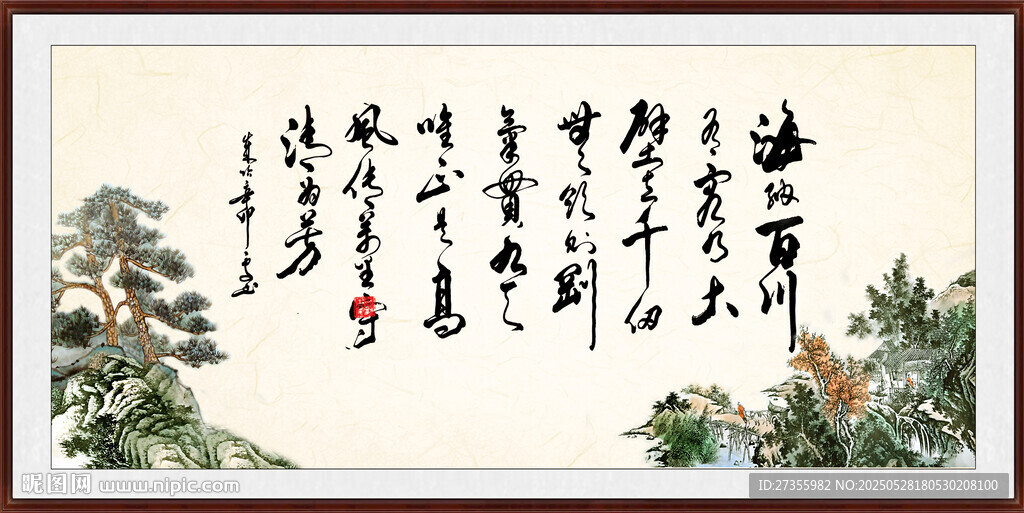 海纳百川
有容乃大
壁立千仞
無欲則剛
氣貫九天
唯正是高
風传萬里
清為芳
辛卯
昵图网 www.nipic.com
ID:27355982 NO:20250528180530208100